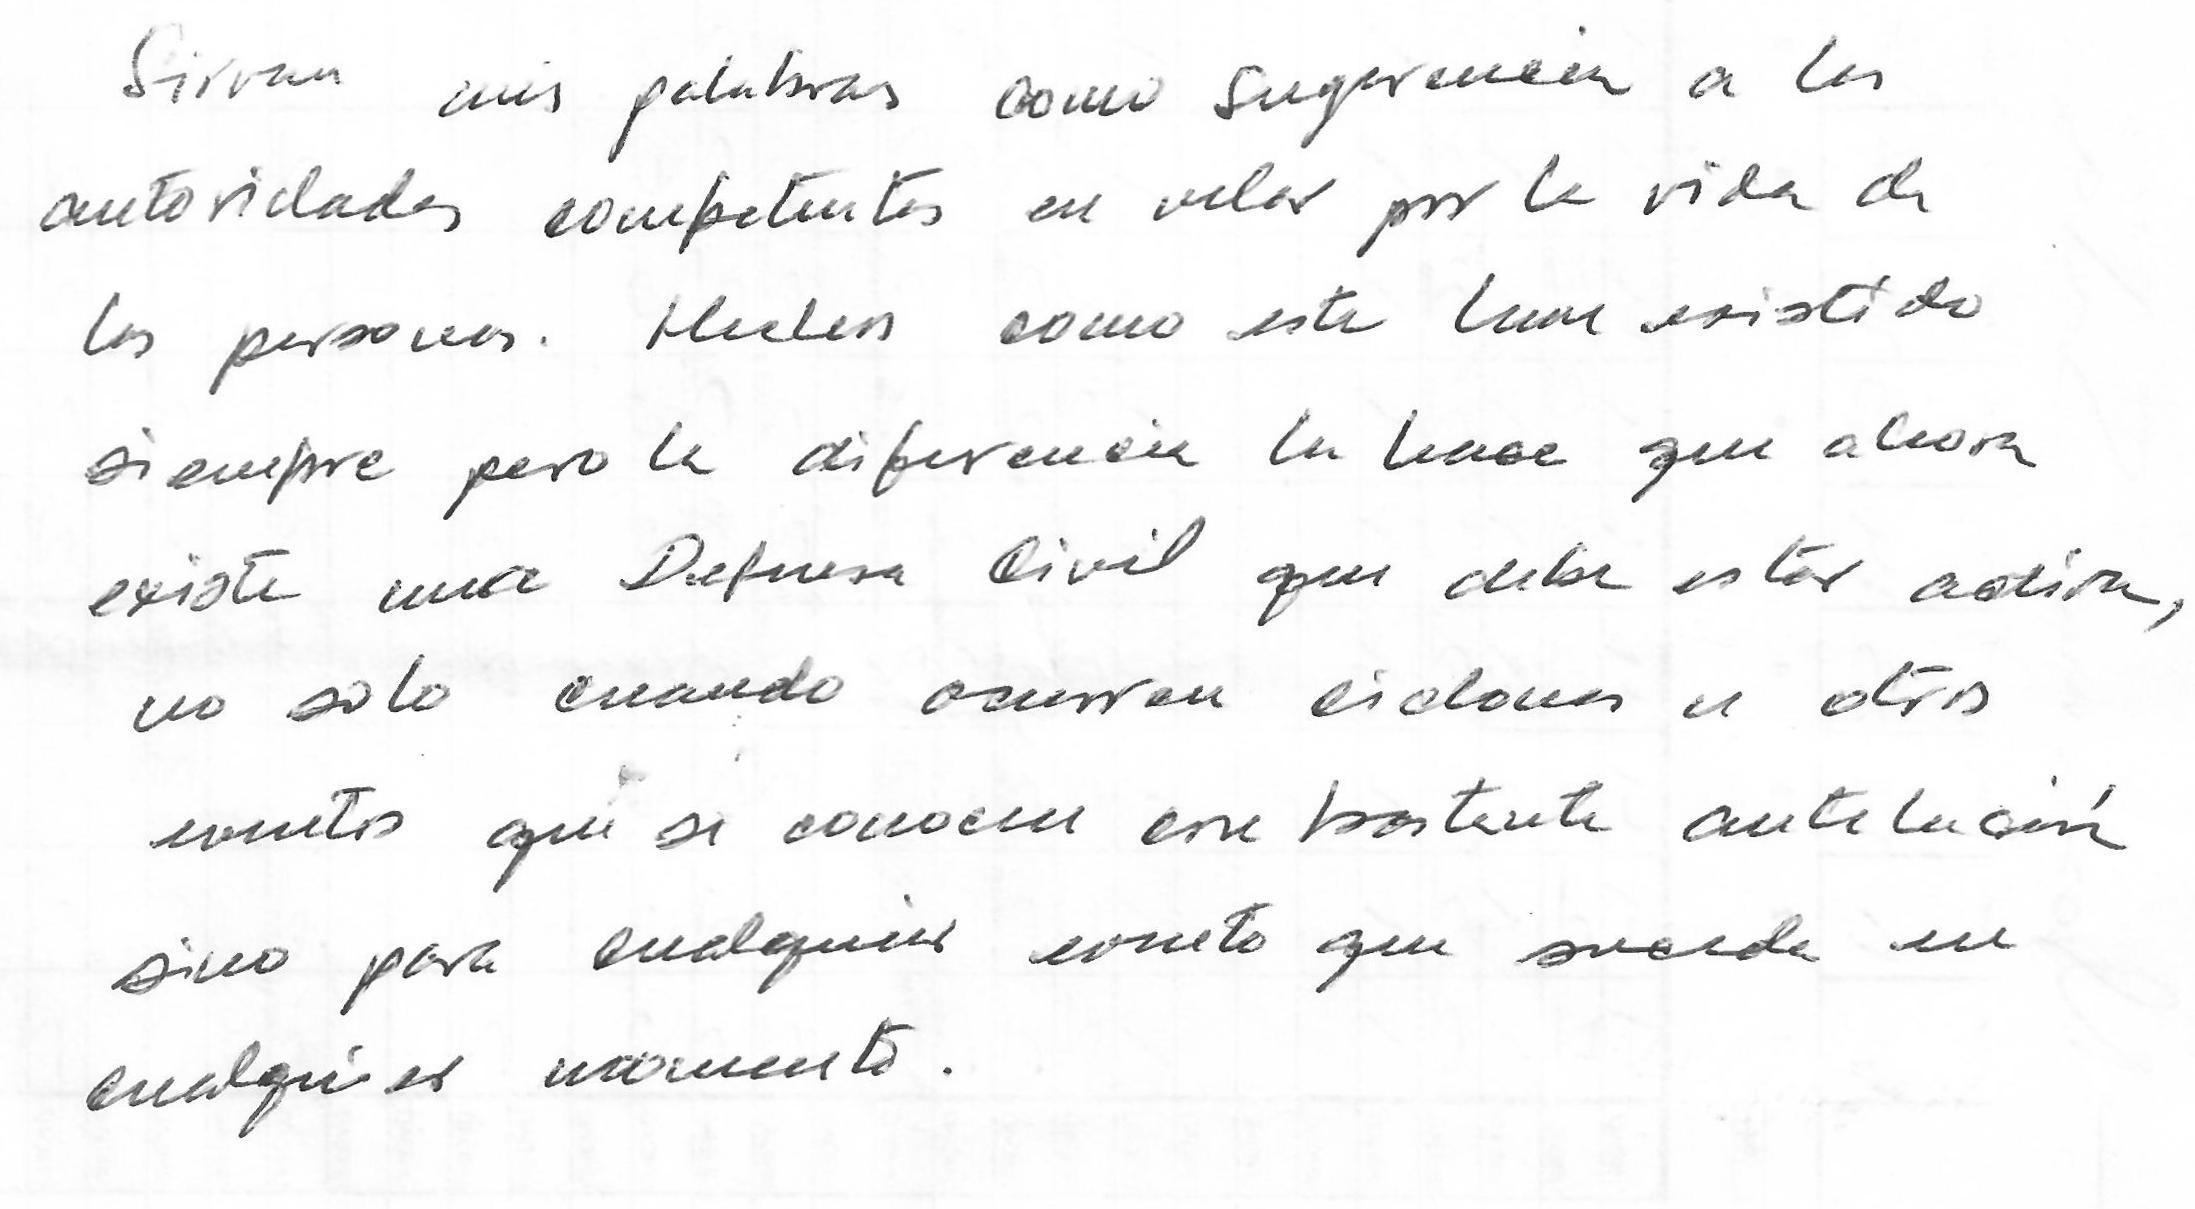 Sirvan mis palabras como sugerencia a las
autoridades competentes en velar por la vida de
las personas. Hechos como este han existido
siempre pero la diferencia la hace que ahora
existe una Defensa Civil que debe estar activa,
no solo cuando ocurren ciclones u otros
eventos que se conocen con bastante antelación
sino para cualquier evento que suceda en
cualquier momento.